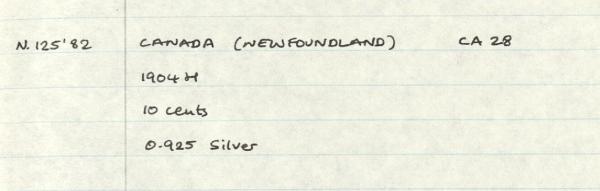 N.125'82 CANADA (NEWFOUNDLAND) CA 28
1904 H
10 cents
0.925 Silver